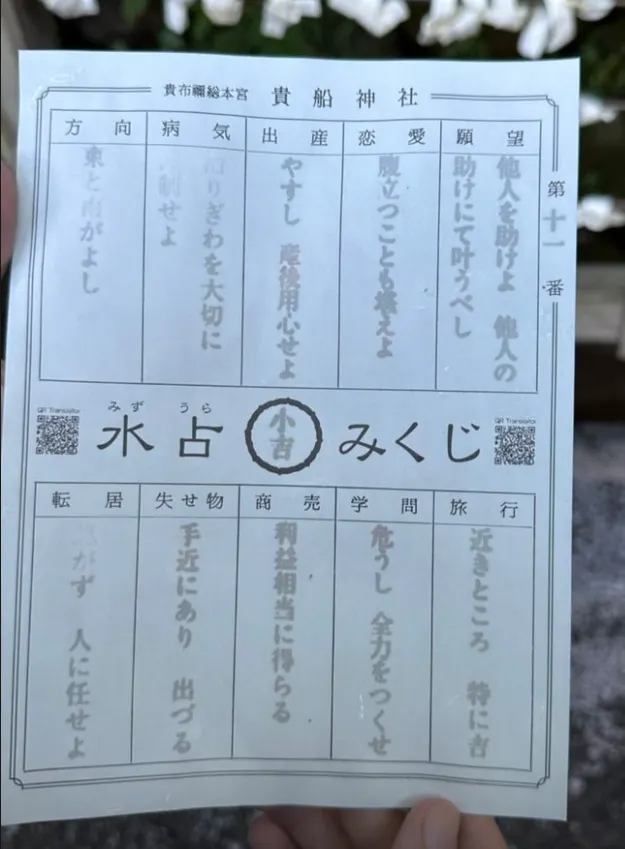 貴布禰総本宮 貴船神社
第十一番
願望
他人を助けよ 他人の
助けにて叶うべし
恋愛
腹立つことも堪えよ
出産
やすし 産後用心せよ
病気
りぎわを大切に
制せよ
方向
東と南がよし
QR Translator
みず うら
水占
小吉
みくじ
QR Translator
旅行
近きところ 特に吉
学問
危うし 全力をつくせ
商売
利益相当に得らる
失せ物
手近にあり 出づる
転居
がず 人に任せよ